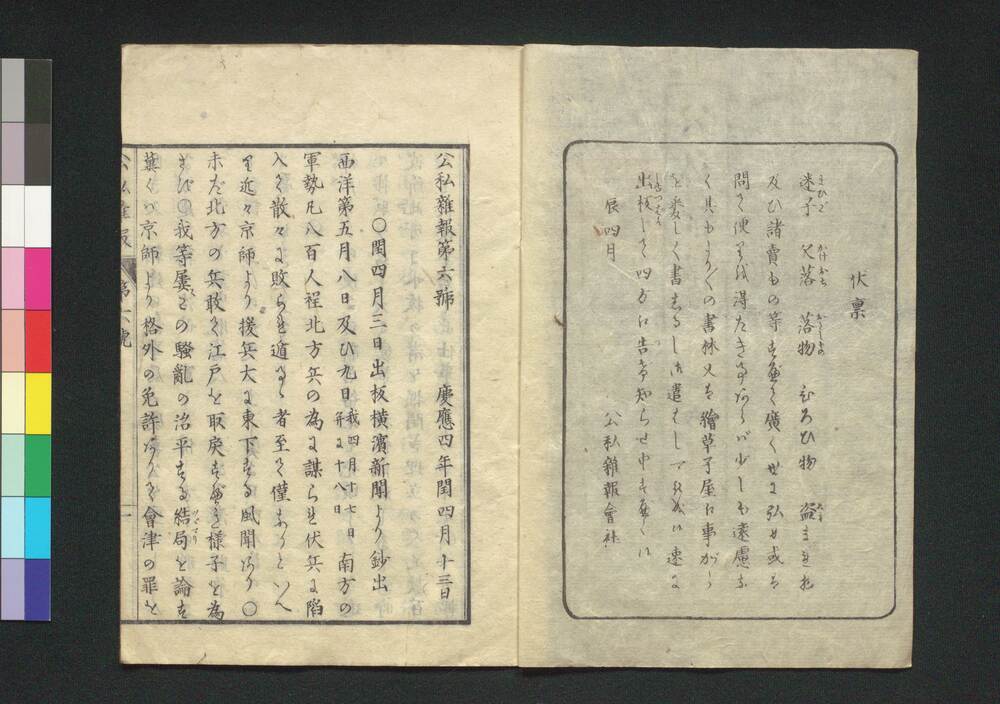 伏禀
迷子 欠落 落物 ひろひ物 盗まれ物
及ひ諸賣もの等すべて廣く世に弘め或は
問て便りを得たき事あらバ少しも遠慮な
く其もよりもよりの書林又は繪草子屋に事がら
を委しく書しるし御遣はし下され候へハ速に
出板して四方に告け知らせ申すべく候
辰四月
公私雑報會社
公私雑報第六號 慶應四年閏四月十三日
○閏四月三日出板横濱新聞より鈔出
西洋第五月八日及ひ九日我四月十七日并に十八日南方の
軍勢凡八百人程北方兵の為に謀られ伏兵に陥
入て散々に敗られ遁るゝ者至て僅なりといへ
り近々京師より援兵大に東下する風聞あり○
未だ北方の兵敢て江戸を取戻すべき様子を為
さず○我等屡この騒亂の治平する結局を論ず
冀くバ京師より格外の免許ありて會津の罪を
公私雑報 第六號 一